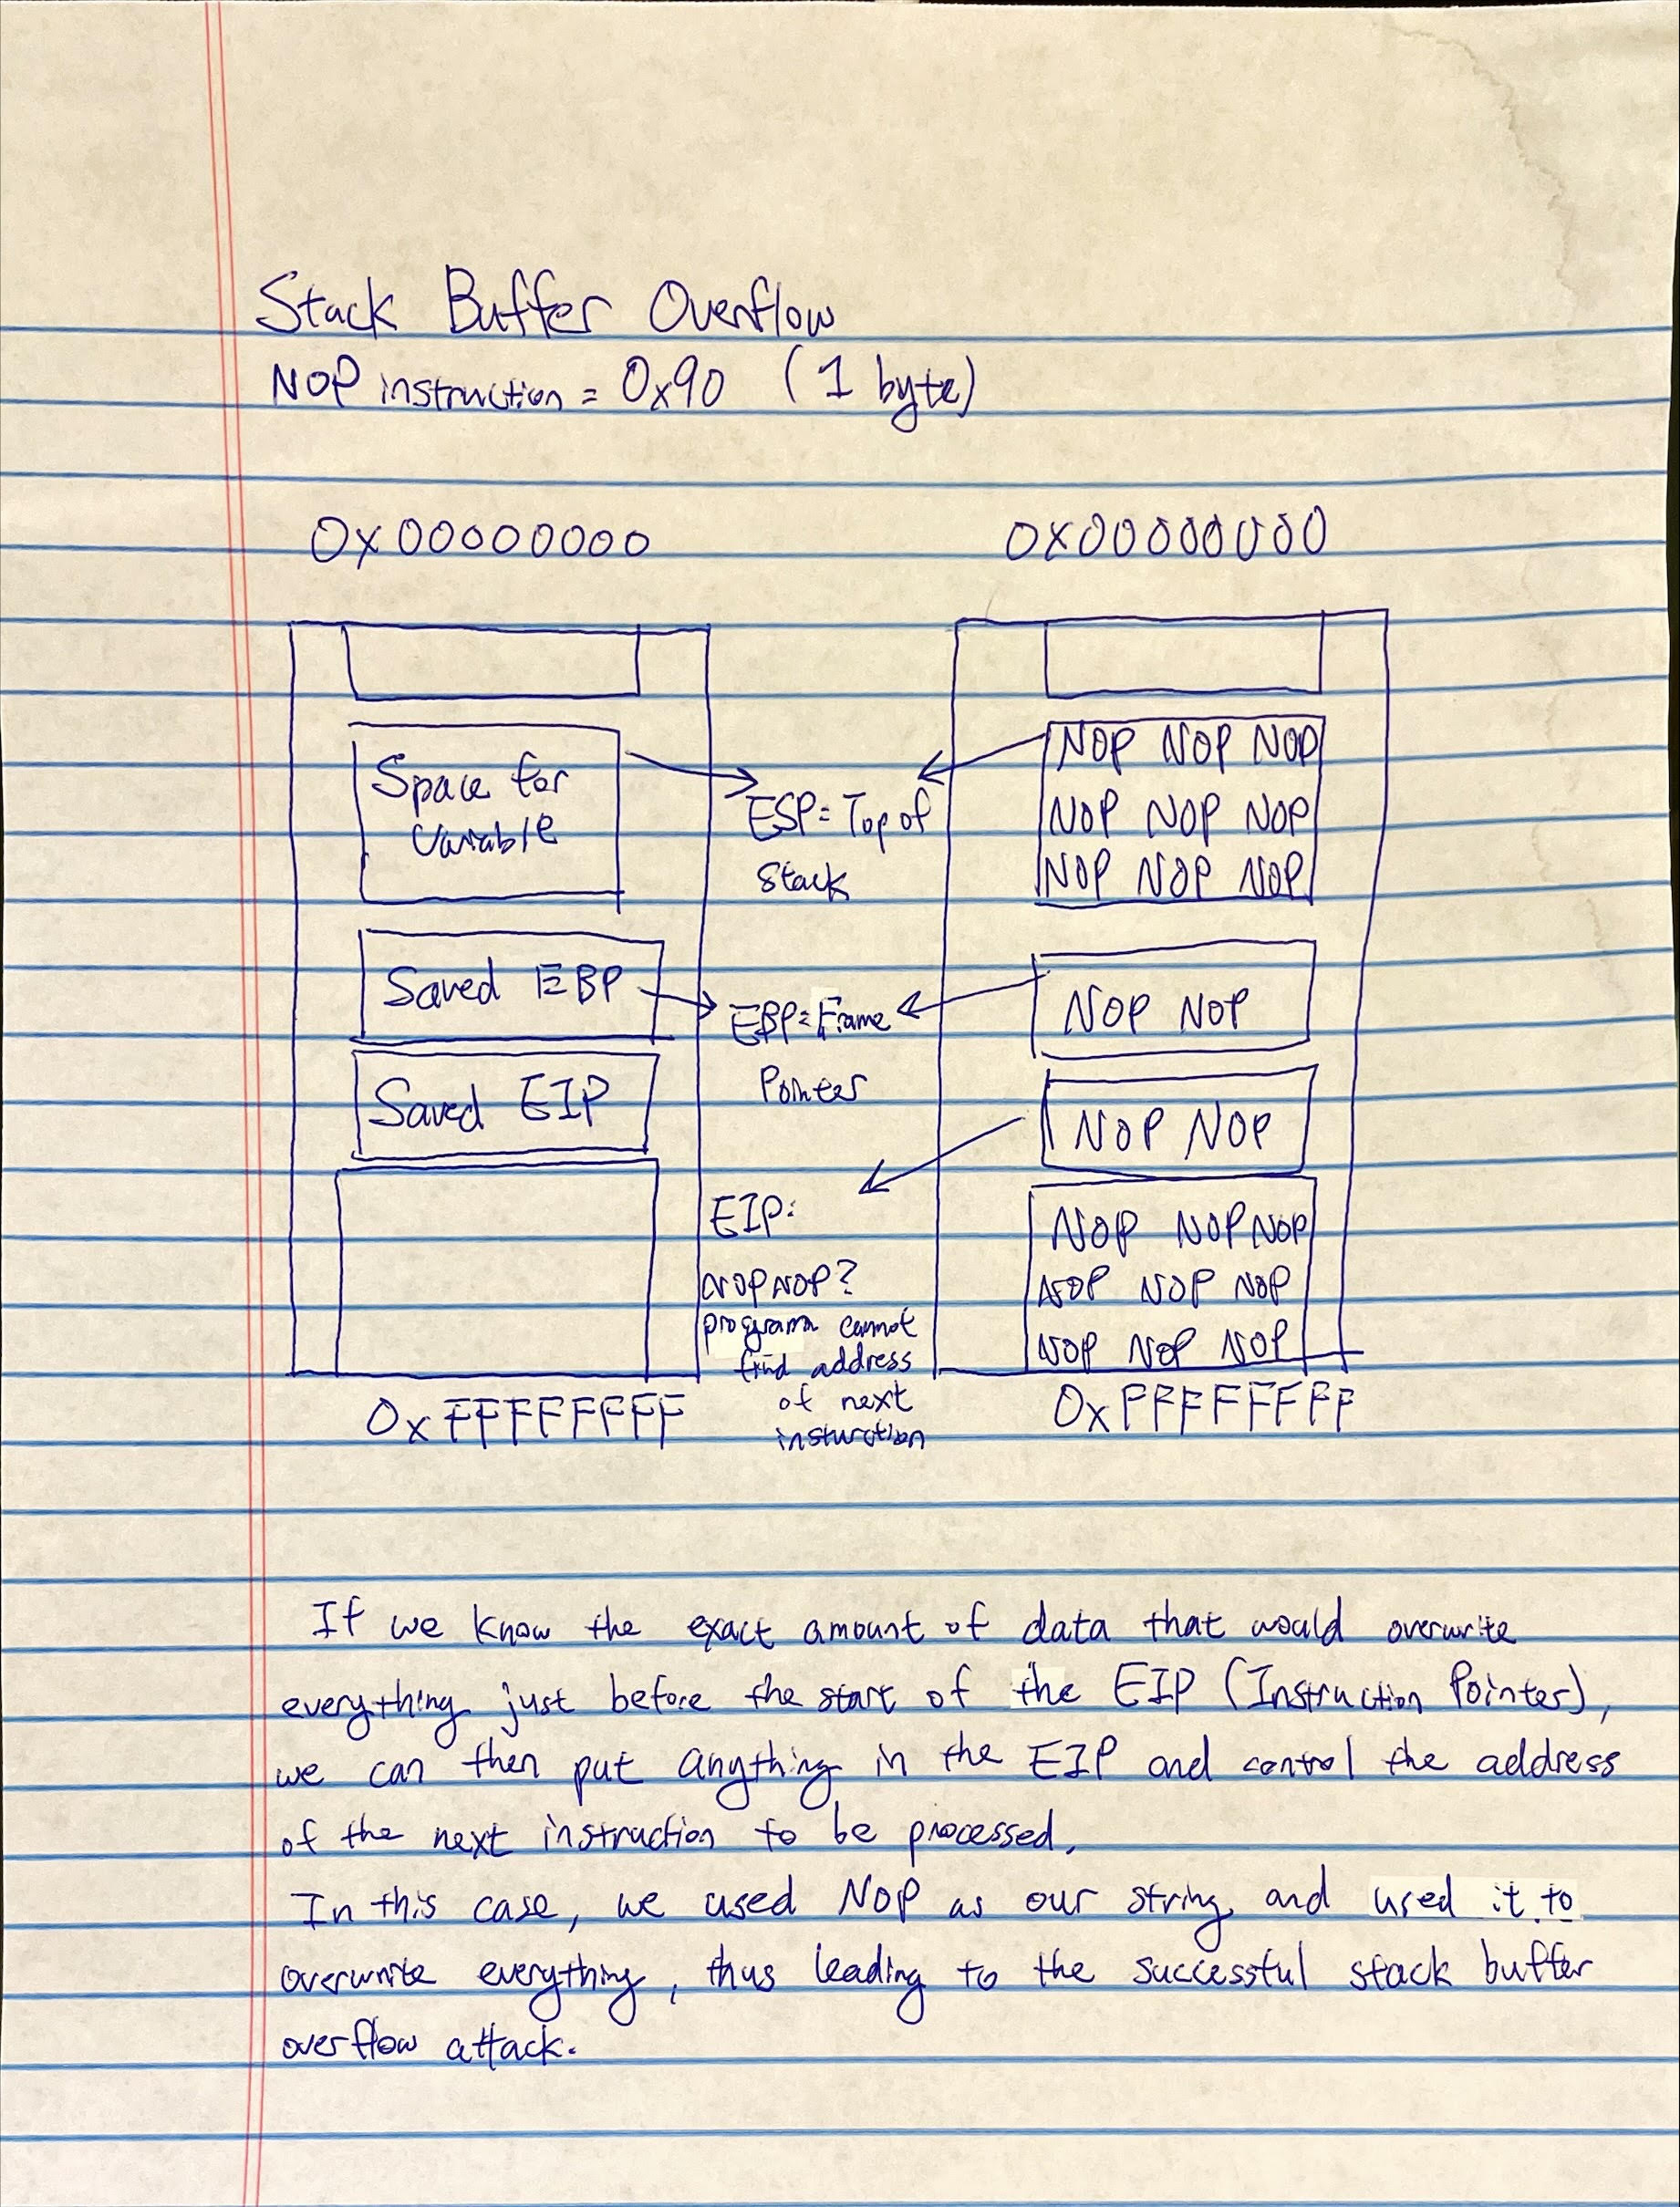 Stack Buffer Overflow
NOP instruction = 0x90 (1 byte)
0x00000000
0x00000000
Space for
Variable
Saved EBP
Saved EIP
0xFFFFFFFF
ESP = Top of
Stack
EBP = Frame
Pointer
EIP:
NOPNOP?
program cannot
find address
of next
insturction
NOP NOP NOP
NOP NOP NOP
NOP NOP NOP
NOP NOP
NOP NOP
NOP NOP NOP
NOP NOP NOP
NOP NOP NOP
0xFFFFFFFF
If we know the exact amount of data that would overwrite
everything just before the start of the EIP (Instruction Pointer),
we can then put anything in the EIP and control the address
of the next instruction to be processed.
In this case, we used NOP as our string and used it to
overwrite everything, thus leading to the successful stack buffer
overflow attack.